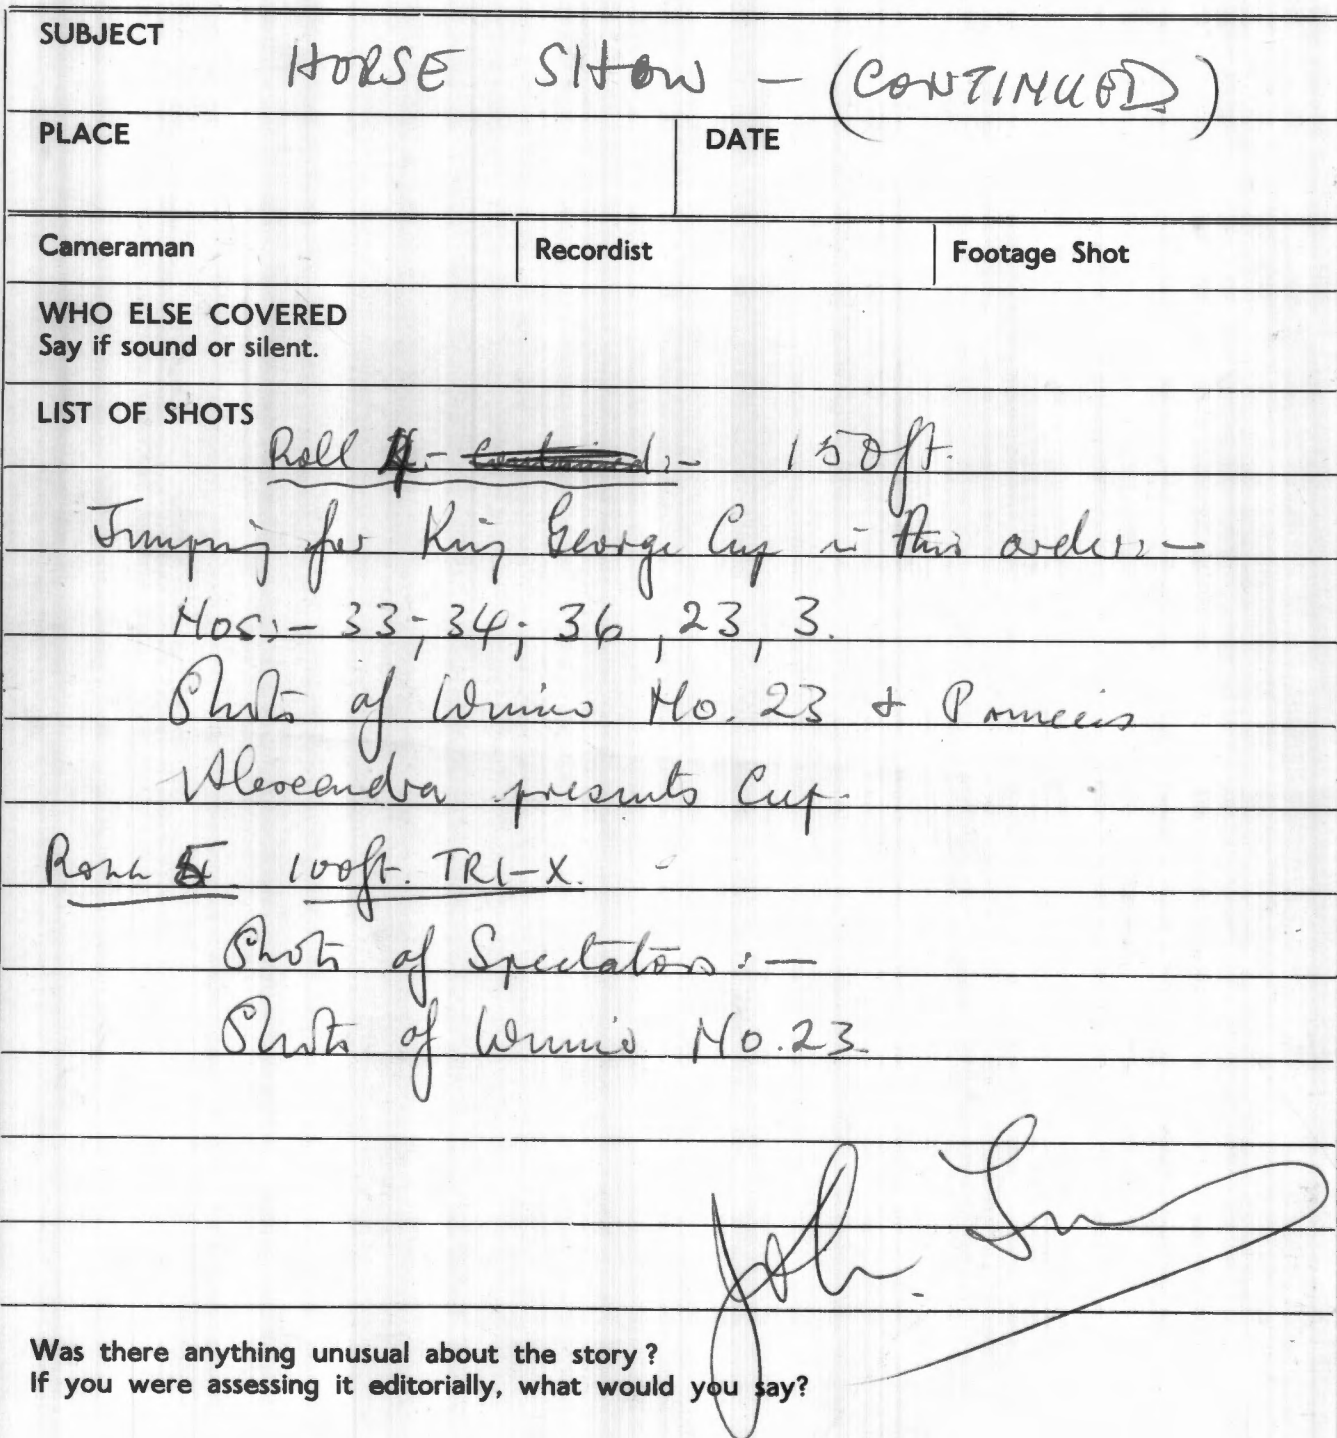 SUBJECT
HORSE SHOW - (CONTINUED)
PLACE
DATE
Cameraman
Recordist
Footage Shot
WHO ELSE COVERED
Say if sound or silent.
LIST OF SHOTS
Roll 4 :- 150ft.
Jumping for King George Cup in this order:-
Nos:- 33; 34; 36, 23, 3.
Shots of Winner No. 23 & Princess
Alexandra presents Cup.
ROLL 5 100ft. TRI-X.
Shots of Spectators:-
Shots of Winner No. 23.
John
Was there anything unusual about the story?
If you were assessing it editorially, what would you say?